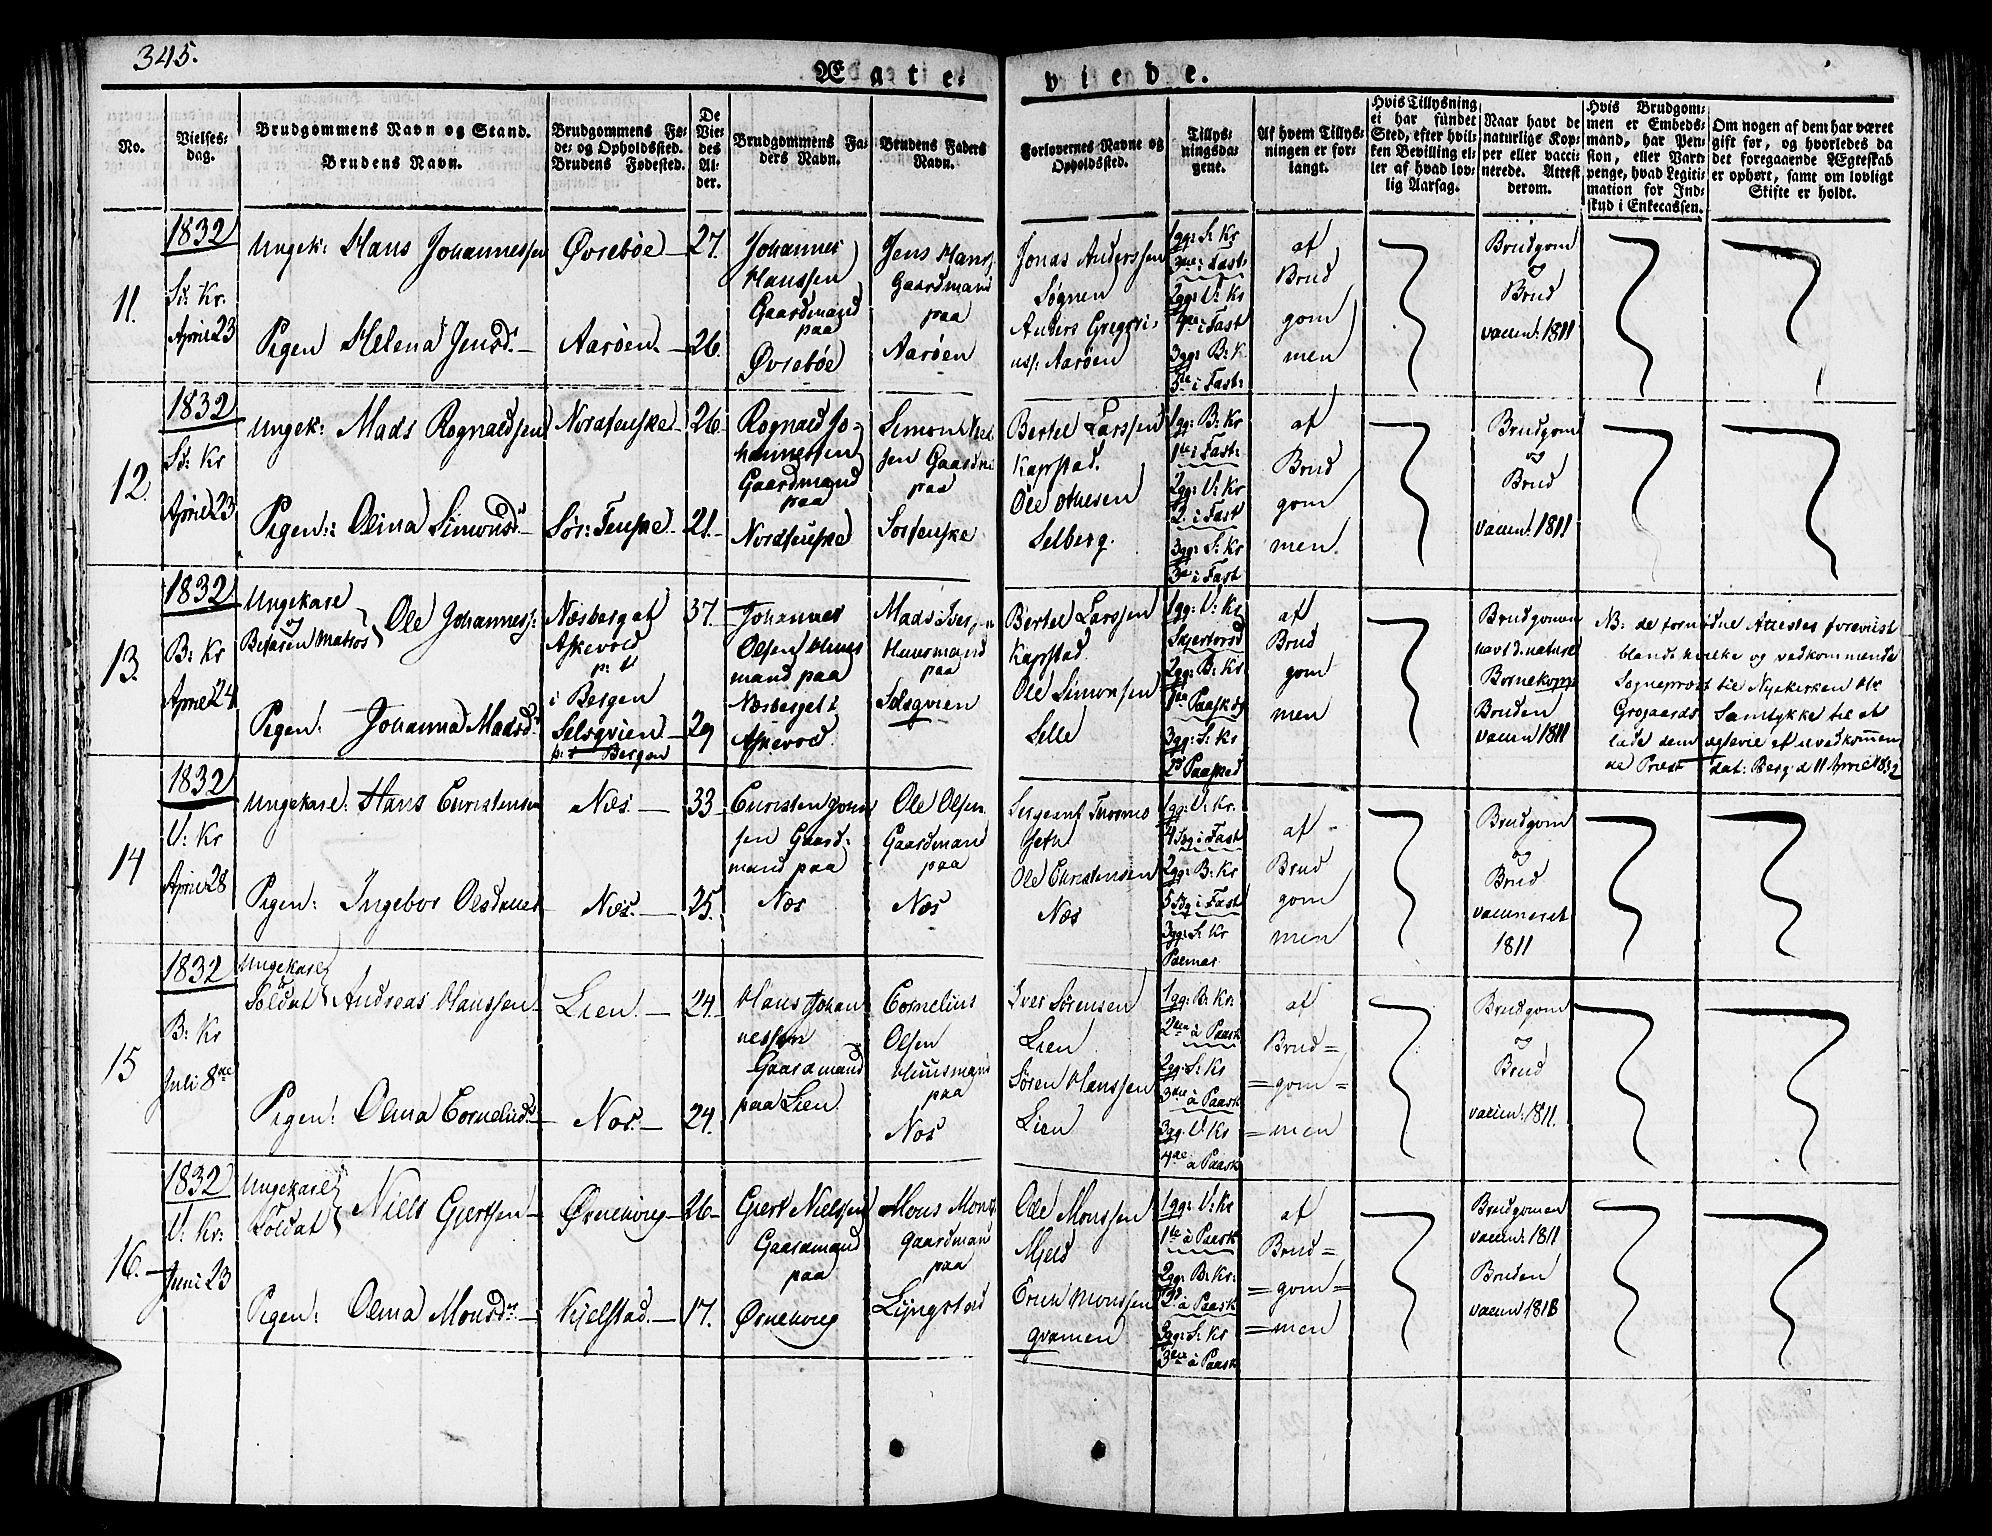 345.
Ægte-
viede.
No.
Vielses-
dag.
Brudgommens Navn og Stand.
Brudens Navn.
Brudgommens Fø-
de- og Opholdssted.
Brudens Fødested.
De
Vie-
des
Al-
der.
Brudgommens Fa-
ders Navn.
Brudens Faders
Navn.
Forlovernes Navne og
Opholdssted.
Tillys-
ningsda-
gene.
Af hvem Tillys-
ningen er for-
langt.
Hvis Tillysning
ei har fundet
Sted, efter hvil-
ken Bevilling el-
ler af hvad lov-
lig Aarsag.
Naar havt de
naturlige Kop-
per eller vacci-
nerede. Attest
derom.
Hvis Brudgom-
men er Embeds-
mand, har Pen-
sion, eller Vart-
penge, hvad Legiti-
mation for Ind-
skud i Enkecassen.
Om nogen af dem har været
gift før, og hvorledes da
det foregaaende Ægteskab
er ophørt, samt om lovligt
Skifte er holdt.
11.
1832
S: Kr.
April 23
Ungek: Hans Johannessen
Pigen Helena Jensd:
Øvrebøe
Aarøen
27.
26.
Johannes
Hanssen
Gaardmand
paa
Øvrebøe
Jens Hans
Gaardmand
paa
Aarøen
Jonas Anderssen
Søgnen
Anders Gregori-
uss: Aarøen
1gg: S: Kr
3die i Fast:
2gg: V: Kr
4de i Fast
3gg: B: K.
5te i Fast:
af
Brud
gom
men
Brudgom
og
Brud
vaccin: 1811
12.
1832
S: Kr
April 23
Ungek: Mads Rognaldsen
Pigen: Olina Simonsd:
Nordfenske
Sør: Fenske
26.
21.
Rognald Jo-
hannessen
Gaardmand
paa
Nordfenske
Simon
sen Gaardm
paa
Sørfenske
Bertel Larssen
Kapstad.
Ole Aknesen
Selberg.
1gg: B: Kr
1te i Fast:
2gg: V: Kr
2. i Fast
3gg: S: Kr
3de i Fast
af
Brud
gom
men.
Brudgom
og
Brud
vaccin: 1811
13.
1832
B: Kr
April 24
Ungekarl
og
Befaren Matros
Ole Johanness:
Pigen: Johanna Madsd:
Næsberget
Askevold
p: t
i Bergen
Selsqvien
p: t Bergen
37.
29
Johannes
Olsen Huus
mand paa
Næsberget i
Askevold.
Mads Iver
Huusmand
paa
Selsqvien
Bertel Larssen
Kapstad
Ole Simonsen
Selle
1gg: V: Kr
Skjertorsd
2gg: B: Kr
1ste Paaskd
3gg: S: Kr
2d Paasked
af
Brud
gom
men
Brudgomen
havt d. naturl
Bornekopr
Bruden
vaccin 1811
NB: de fornødne Attester foreviist
blandt hvilke og vedkommende
Sogneprest til Nyekerken Hr
Grogaards Samtykke til at
lade dem egtevie af uvedkommen
de Præst dat: Berg: d 11 April 1832
14
1832
V: Kr
April 28
Ungekarl: Hans Christensen
Pigen: Ingebor Olsdatter
Næs
Næs.
33
25.
Christen John
sen Gaard-
mand paa
Næs
Ole Olsen
Gaardmand
paa
Næs
Sergeant Thormo
seth
Ole Christensen
Næs
1gg: V: Kr.
4 Sdg i Fast
2gg: B: Kr
5 Sdg i Fast
3gg: S: Kr
Palmar
af
Brud
gom
men
Brudgom
og
Brud
vaccineret
1811
15
1832
B: Kr
Juli 8de
Ungekarl
Soldat
Andreas Hanssen
Pigen: Olina Cornelisd:
Lien
Næs.
24.
24.
Hans Johan
nessen
Gaardmand
paa Lien
Cornelius
Olsen
Huusmand
paa
Næs
Iver Sørensen
Lien
Søren Hanssen
Lien
1gg: B: Kr.
2den à Paask
2gg. S: Kr
3die à Paask
3gg: V: Kr
4de à Paask
af
Brud=
=gom=
=men
Brudgom
og
Brud
vaccin: 1811.
16.
1832
V: Kr:
Juni 23
Ungekarl
Soldat
Niels Gjertsen
Pigen: Olina Monsd:
Ørnehoug
Kjelstad.
26
17.
Gjert Nielsen
Gaardmand
paa
Ørnehoug
Mons Mons
gaardmand
paa
Lyngstad
Ole Monssen
Mjels
Erich Monssen
qvamen
1gg: V: Kr
1te à Paask
2gg: B: Kr:
2d à Paask
3gg: S: Kr
3die à Paask
af
Brud=
=gom=
=men
Brudgomen
vaccin: 1811
Bruden
vaccin 1818